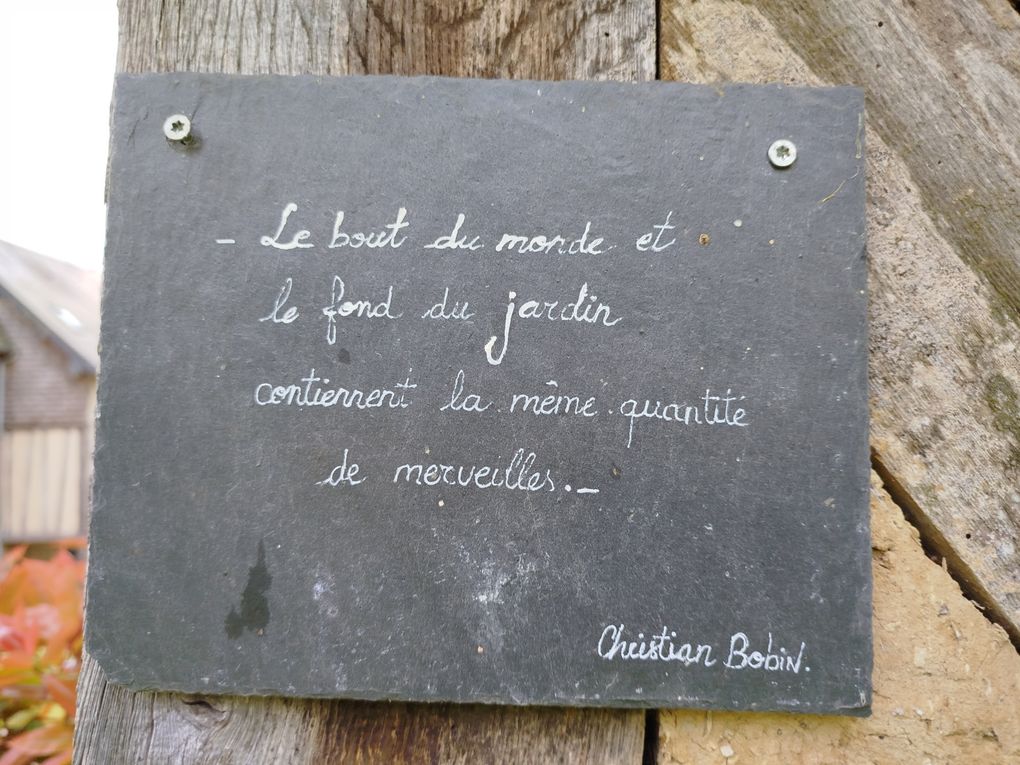 - Le bout du monde et
le fond du jardin
contiennent la même quantité
de merveilles. -
Christian Bobin.